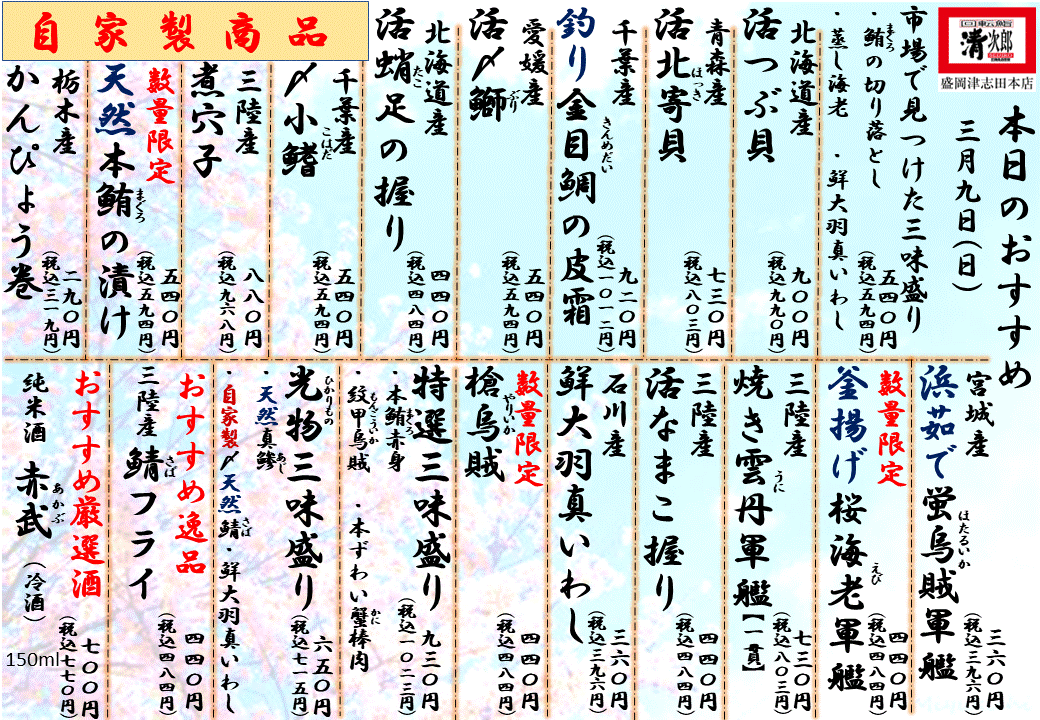 回転鮨
清次郎
SEIJIRO
盛岡津志田本店
本日のおすすめ
三月九日(日)
市場で見つけた三味盛り
・鮪の切り落とし
まぐろ
・蒸し海老 ・鮮大羽真いわし
五四〇円
(税込五九四円)
北海道産
活つぶ貝
九〇〇円
(税込九九〇円)
青森産
活北寄貝
ほっき
七三〇円
(税込八〇三円)
千葉産
釣り金目鯛の皮霜
きんめだい
九二〇円
(税込一〇一二円)
愛媛産
活〆鰤
ぶり
五四〇円
(税込五九四円)
北海道産
活蛸足の握り
たこ
四四〇円
(税込四八四円)
自家製商品
千葉産
〆小鰭
こはだ
五四〇円
(税込五九四円)
三陸産
煮穴子
八八〇円
(税込九六八円)
数量限定
天然本鮪の漬け
まぐろ
五四〇円
(税込五九四円)
栃木産
かんぴょう巻
二九〇円
(税込三一九円)
宮城産
浜茹で蛍烏賊軍艦
ほたるいか
三六〇円
(税込三九六円)
数量限定
釜揚げ桜海老軍艦
えび
四四〇円
(税込四八四円)
三陸産
焼き雲丹軍艦【一貫】
うに
七三〇円
(税込八〇三円)
三陸産
活なまこ握り
四四〇円
(税込四八四円)
石川産
鮮大羽真いわし
三六〇円
(税込三九六円)
数量限定
槍烏賊
やりいか
四四〇円
(税込四八四円)
特選三味盛り
・本鮪赤身
まぐろ
・紋甲烏賊 ・本ずわい蟹棒肉
もんごういか
かに
九三〇円
(税込一〇二三円)
光物三味盛り
ひかりもの
・天然真鯵
あじ
・自家製〆天然鯖・鮮大羽真いわし
さば
六五〇円
(税込七一五円)
おすすめ逸品
三陸産 鯖フライ
さば
四四〇円
(税込四八四円)
おすすめ厳選酒
純米酒 赤武 (冷酒)
あかぶ
150ml
七〇〇円
(税込七七〇円)